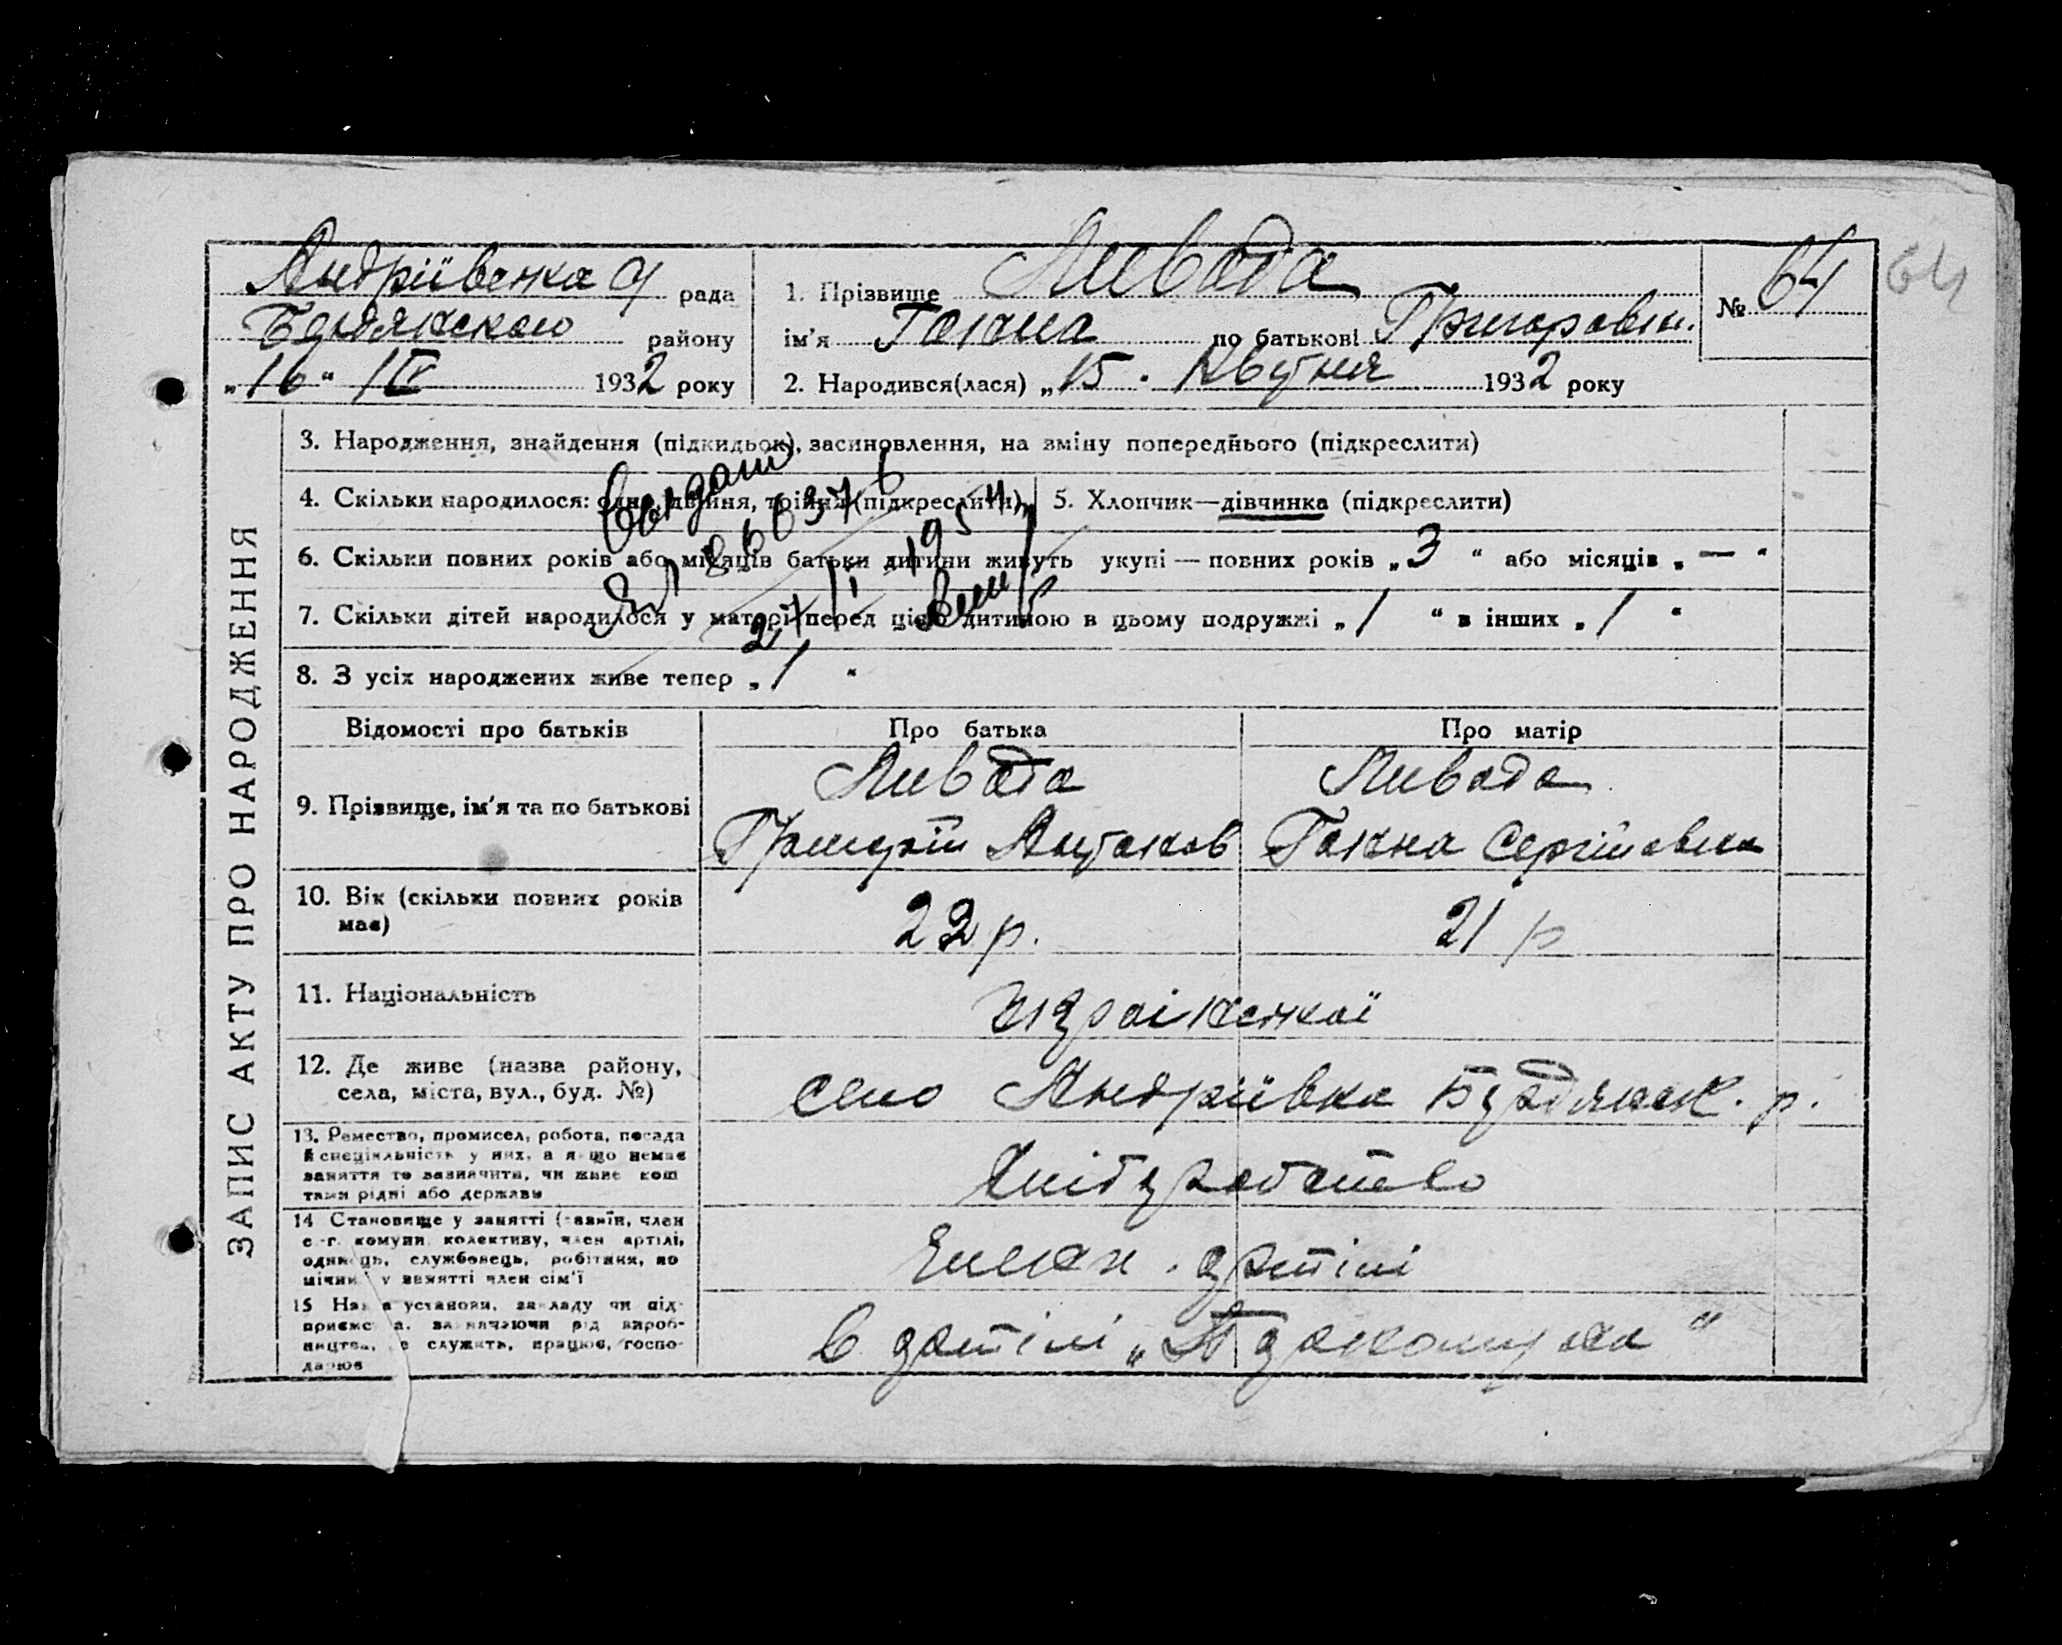 Андріївська рада
Бердянського району
„16“ IV 1932 року
1. ПрізвищеЛивада
ім'я Ганна по батькові Григоровн.
№ 64
64
2. Народився(лася) „15. Квітня 1932 року
ЗАПИС АКТУ ПРО НАРОДЖЕННЯ
3. Народження, знайдення (підкидьок), засиновлення, на зміну попереднього (підкреслити)
4. Скільки народилося: одна, двійня, трійня (підкреслити)
5. Хлопчик—дівчинка (підкреслити)
6. Скільки повних років або місяців батьки дитини живуть укупі — повних років „3“ або місяців „—“
7. Скільки дітей народилося у матері перед цією дитиною в цьому подружжі „1“ в інших „1“
8. З усіх народжених живе тепер „1“
Відомості про батьків Про батька Про матір
9. Прізвище, ім'я та по батькові
Ливада
Григорій Антонов
Ливада
Ганна Сергіївна
10. Вік (скільки повних років
має)
22 р. 21 р
11. Національність
української
12. Де живе (назва району,
села, міста, вул., буд. №)
село Андріївка Бердянськ. р.
13. Ремество, промисел, робота, посада
й спеціяльність у них, а якщо немає
заняття то зазначити, чи живе кош
тами рідні або держави
Хліборобство
14 Становище у занятті (хазяїн, член
с.-г. комуни, колективу, член артілі,
одинець, службовець, робітник, по
мічник у занятті член сім'ї
Член. артілі
15 Назва установи, закладу чи підприємства, зазначаючи рід виробництва, де служить, працює, госпо-
дарює
в артілі „